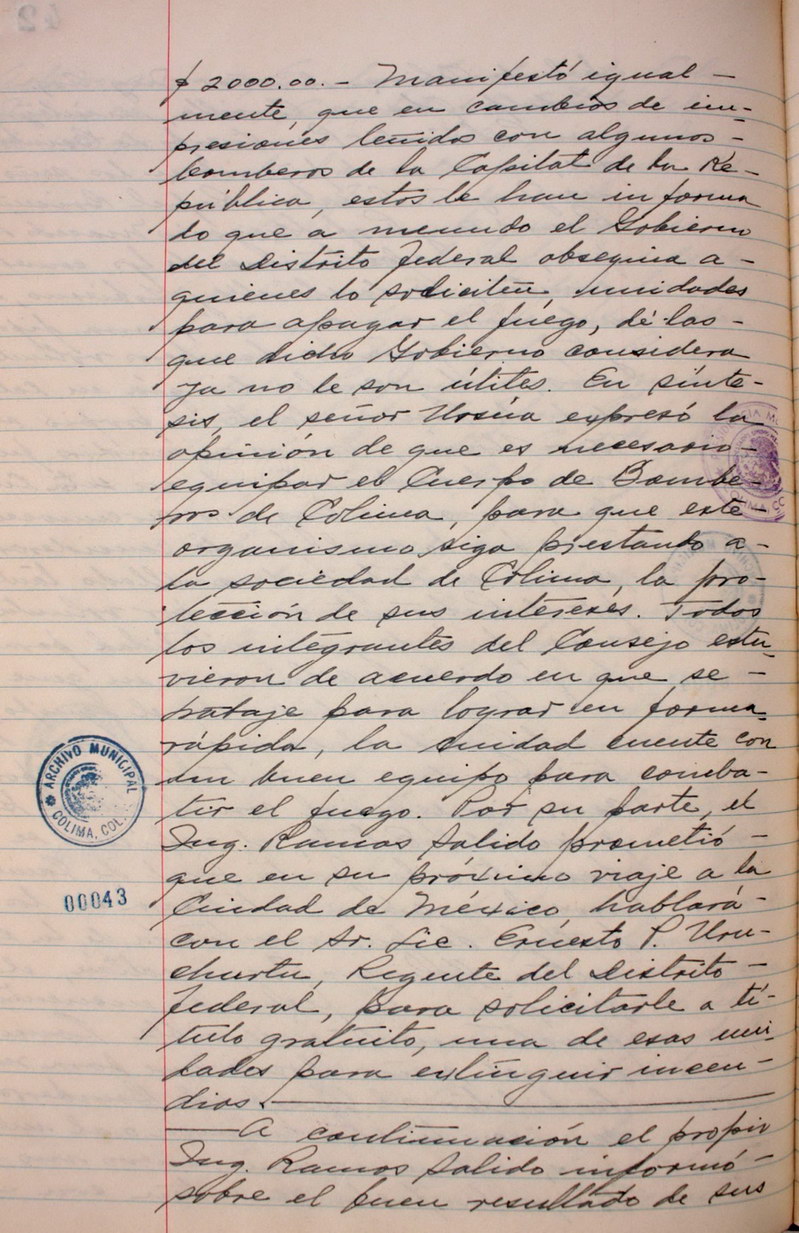 $ 2000.00. - Manifestó igual -
mente, que en cambios de im-
presiones tenidos con algunos -
bomberos de la Capital de la Re-
pública, estos le han informa
do que a menudo el Gobierno
del Distrito Federal obsequia a -
quienes lo soliciten, unidades
para apagar el fuego, de las -
que dicho Gobierno considera
ya no le son útiles. En sínte-
sis, el señor Ursúa expresó la
opinión de que es necesario -
equipar el Cuerpo de Bombe-
ros de Colima, para que este -
organismo siga prestando a -
la sociedad de Colima, la pro-
tección de sus intereses. Todos
los integrantes del Consejo estu-
vieron de acuerdo en que se -
trataje para lograr en forma
rápida, la ciudad cuente con
un buen equipo para comba-
tir el fuego. Por su parte, el
Ing. Ramos Salido prometió -
que en su próximo viaje a la
Ciudad de México, hablará -
con el Sr. Lic. Ernesto P. Uru-
churtu, Regente del Distrito -
Federal, para solicitarle a tí-
tulo gratuito, una de esas uni-
dades para extinguir incen-
dios.
A continuación el propio
Ing. Ramos Salido informó -
sobre el buen resultado de sus
ARCHIVO MUNICIPAL
COLIMA, COL.
00043